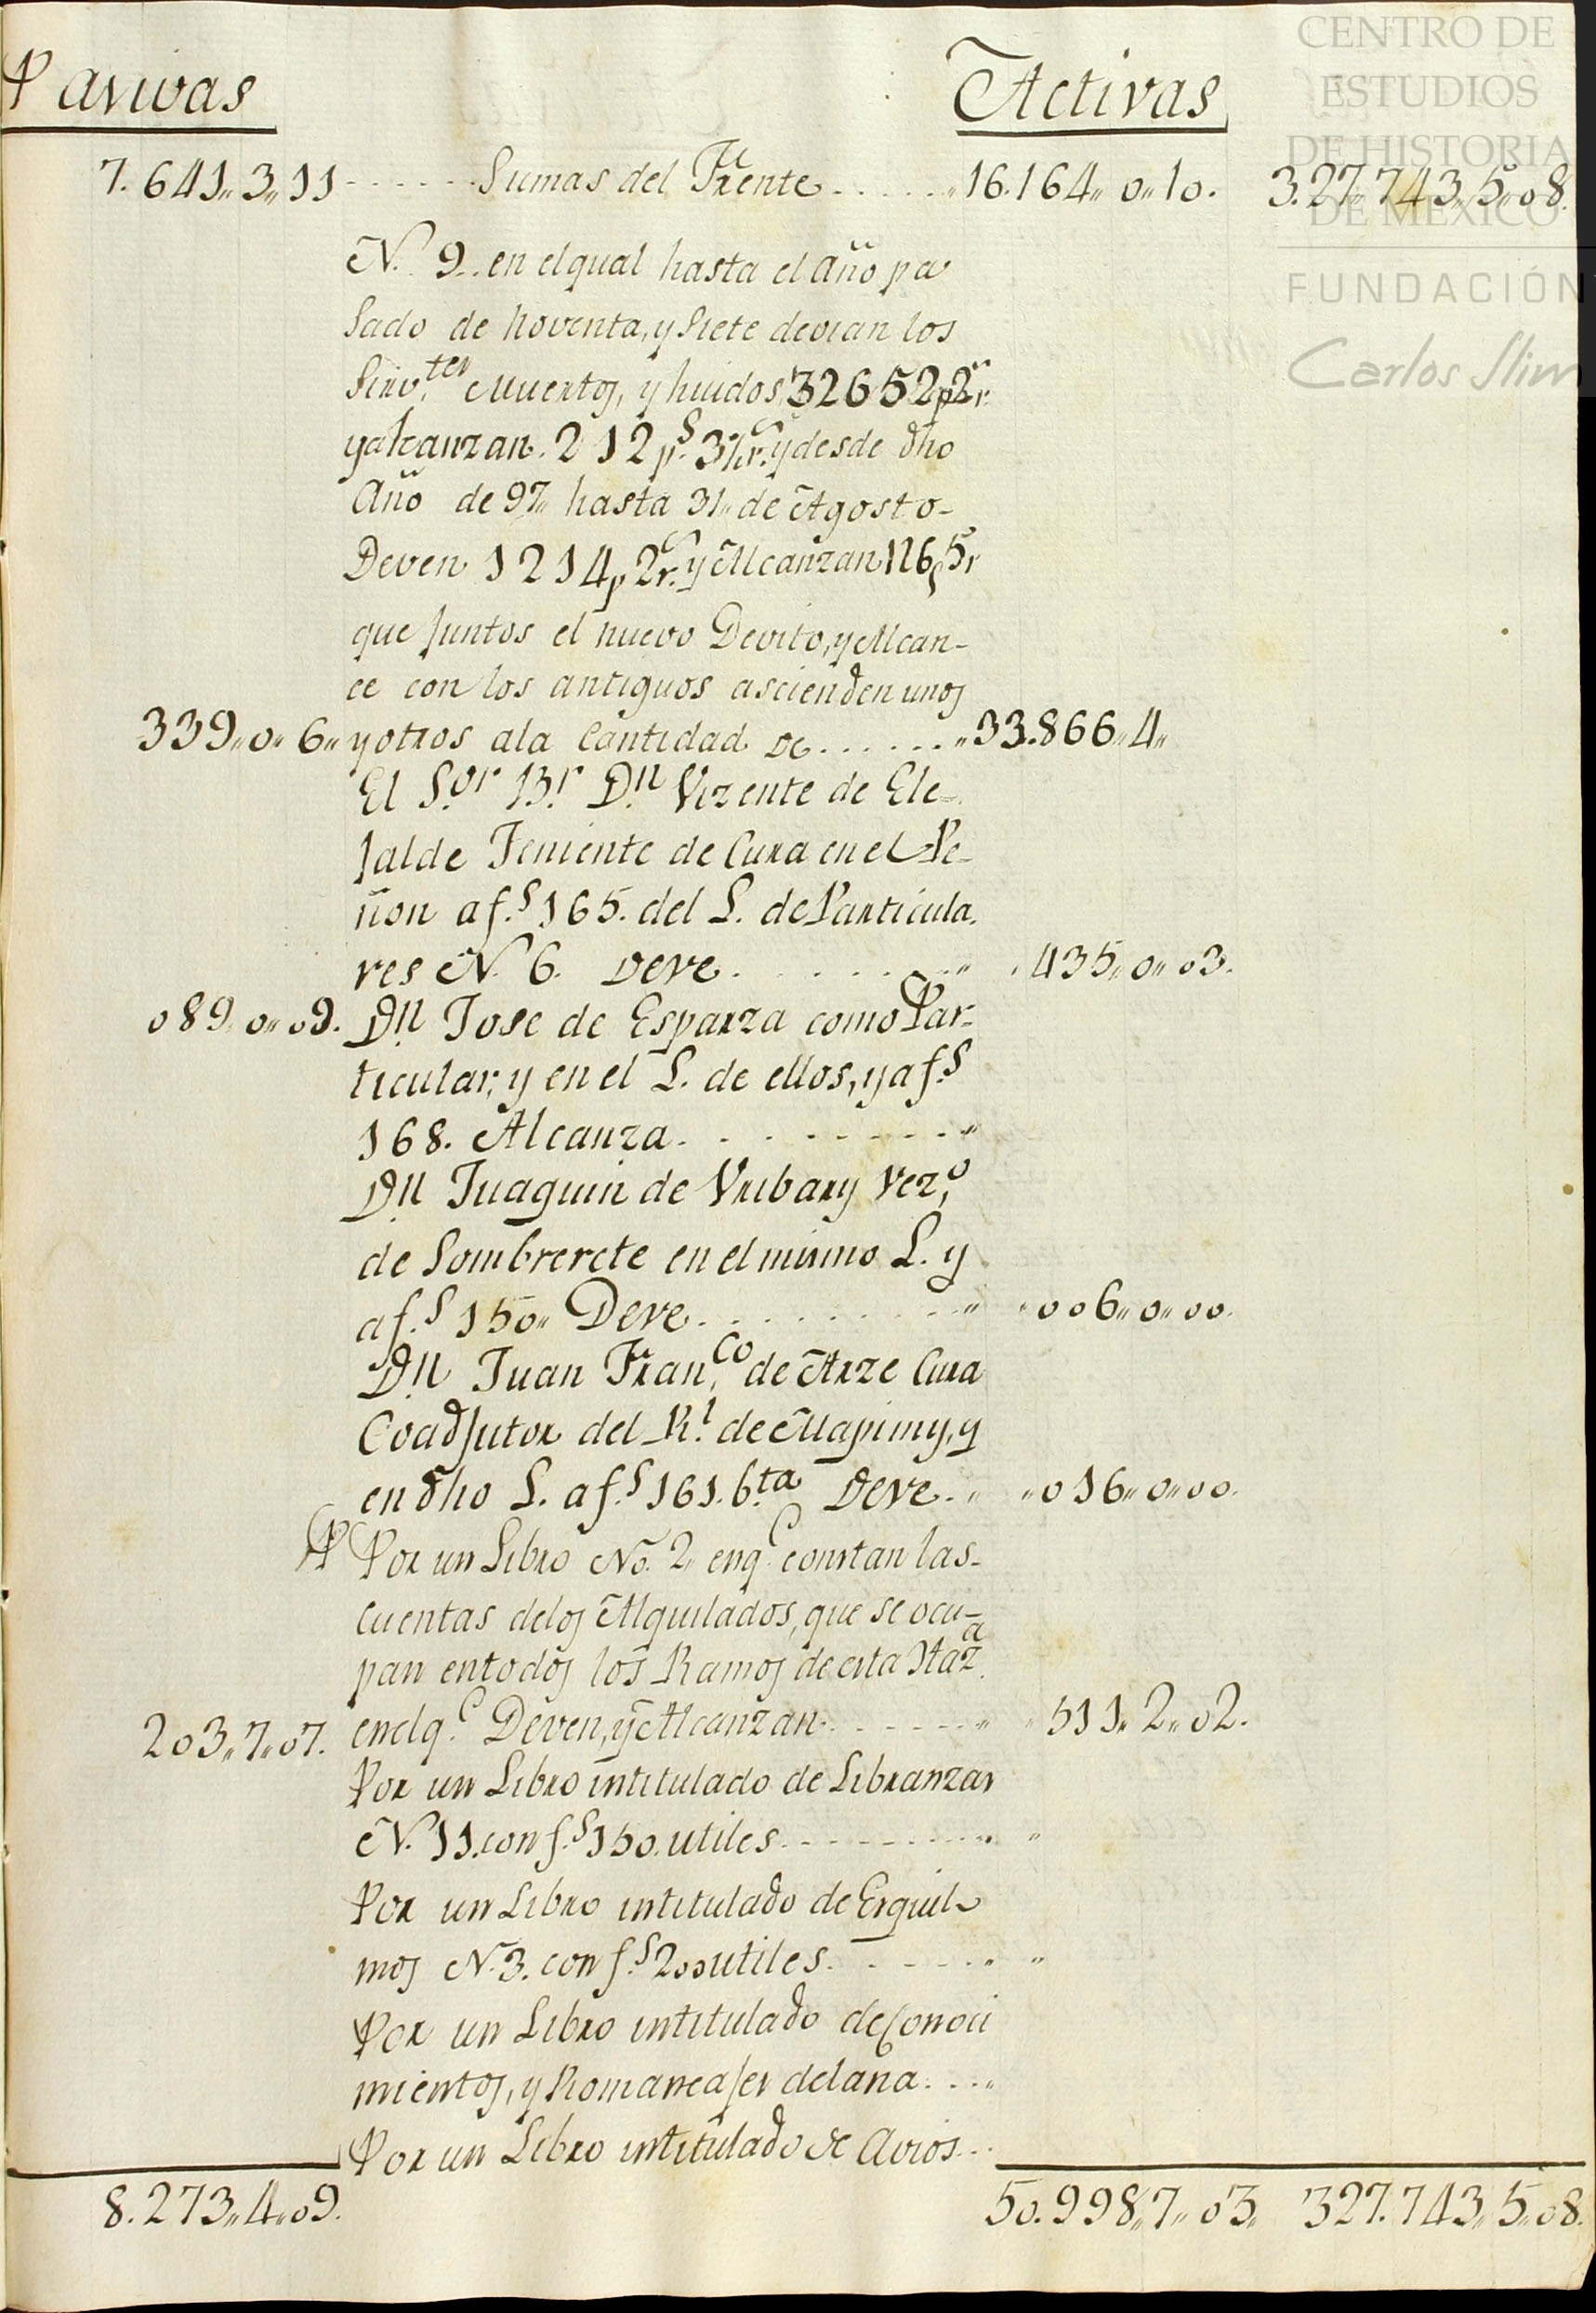 Pasivas Activas
7.641,,3,,11 ------ Sumas del Frente ------ 16.164,,0,,10. 3.27,,743,,5,,08.
N. 9. en el qual hasta el año pa
sado de noventa, y Siete devian los
Sirv.tes Muertos, y huidos 32652p2r.
y alcanzan. 212p.s 3½r.s y desde dho
Año de 97,, hasta 31,, de Agosto-
Deven 1214p 2r.s y Alcanzan 126p5r
que juntos el nuevo Devito, y Alcan-
ce con los antiguos ascienden unos
339,,0,,6,, y otros ala Cantidad de ...... ,,33.866,,4,,
El S.or B.r D.n Vizente de Ele-
jalde Teniente de Cura en el Pe-
ñon a f.s 165. del L. de Particula.
res N. 6. Deve. ...... ,,435,,0,,03.
089,,0,,09. D.n Jose de Esparza como Par-
ticular, y en el L. de ellos, y a f.s
168. Alcanza. - - - - - - - -
D.n Juaquin de Uribary Vez.o
de Sombrerete en el mismo L. y
a f.s 150,, Deve. ...... ,,006,,0,,00.
D.n Juan Fran.co de Arze Cura
Coadjutor del R.l de Mapimy, y
en dho L. a f.s 161. b.ta Deve. ,,016,,0,,00.
Por un Libro No. 2, en q.e constan las-
Cuentas delos Alquilados, que se ocu-
pan en todos los Ramos de esta Haz.a
203,,7,,07. en el q.e Deven, y Alcanzan ------ ,,511,,2,,02.
Por un Libro intitulado de Libranzas
N. 11. con f.s 150. utiles ---------
Por un Libro intitulado de Esquil-
mos N. 3. con f.s 200 utiles. ------
Por un Libro intitulado de Conoci
mientos, y Romaneajes de lana. ...
Por un Libro intitulado de Avios ..
8.273,,4,,09. 50.998,,7,,03,, 327.743,,5,,08.
CENTRO DE
ESTUDIOS
DE HISTORIA
DE MÉXICO
FUNDACIÓN
Carlos Slim